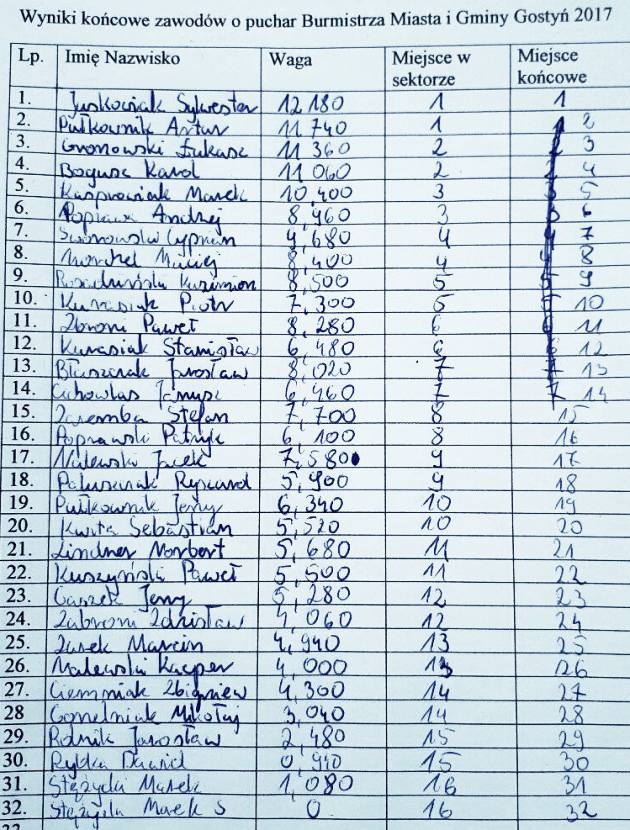 Wyniki końcowe zawodów o puchar Burmistrza Miasta i Gminy Gostyń 2017
Lp. Imię Nazwisko Waga Miejsce w sektorze Miejsce końcowe
1. Juskowiak Sylwester 12 180 1 1
2. Pułkownik Artur 11 740 1 2
3. Gronowski Łukasz 11 360 2 3
4. Bogusz Karol 11 060 2 4
5. Kasprowiak Marek 10,400 3 5
6. Poprawa Andrzej 8,960 3 6
7. Cyprian 9,680 4 7
8. Maciej 8,400 4 8
9. Kazimierz 8,500 5 9
10. Kurasiak Piotr 7,300 5 10
11. Zbroni Paweł 8,280 6 11
12. Kurasiak Stanisław 6,480 6 12
13. Błaszczak Jarosław 8,020 7 13
14. Cichowlas Janusz 6,460 7 14
15. Zaremba Stefan 7,700 8 15
16. Poprawski Patryk 6,100 8 16
17. Malewski Jacek 7,580 9 17
18. Paluszczak Ryszard 5,900 9 18
19. Pułkownik Jerzy 6,340 10 19
20. Kwita Sebastian 5,520 10 20
21. Lindner Norbert 5,680 11 21
22. Kuszyński Paweł 5,500 11 22
23. Jerzy 5,280 12 23
24. Zabroni Zdzisław 4,060 12 24
25. Żurek Marcin 4,940 13 25
26. Malewski Kacper 4,000 13 26
27. Ciemniak Zbigniew 4,300 14 27
28 Gomelniak Mikołaj 3,040 14 28
29. Rolnik Jarosław 2,480 15 29
30. Rybka Dawid 0,940 15 30
31. Stężycki Marek 1,080 16 31
32. Stężycki Marek S 0 16 32